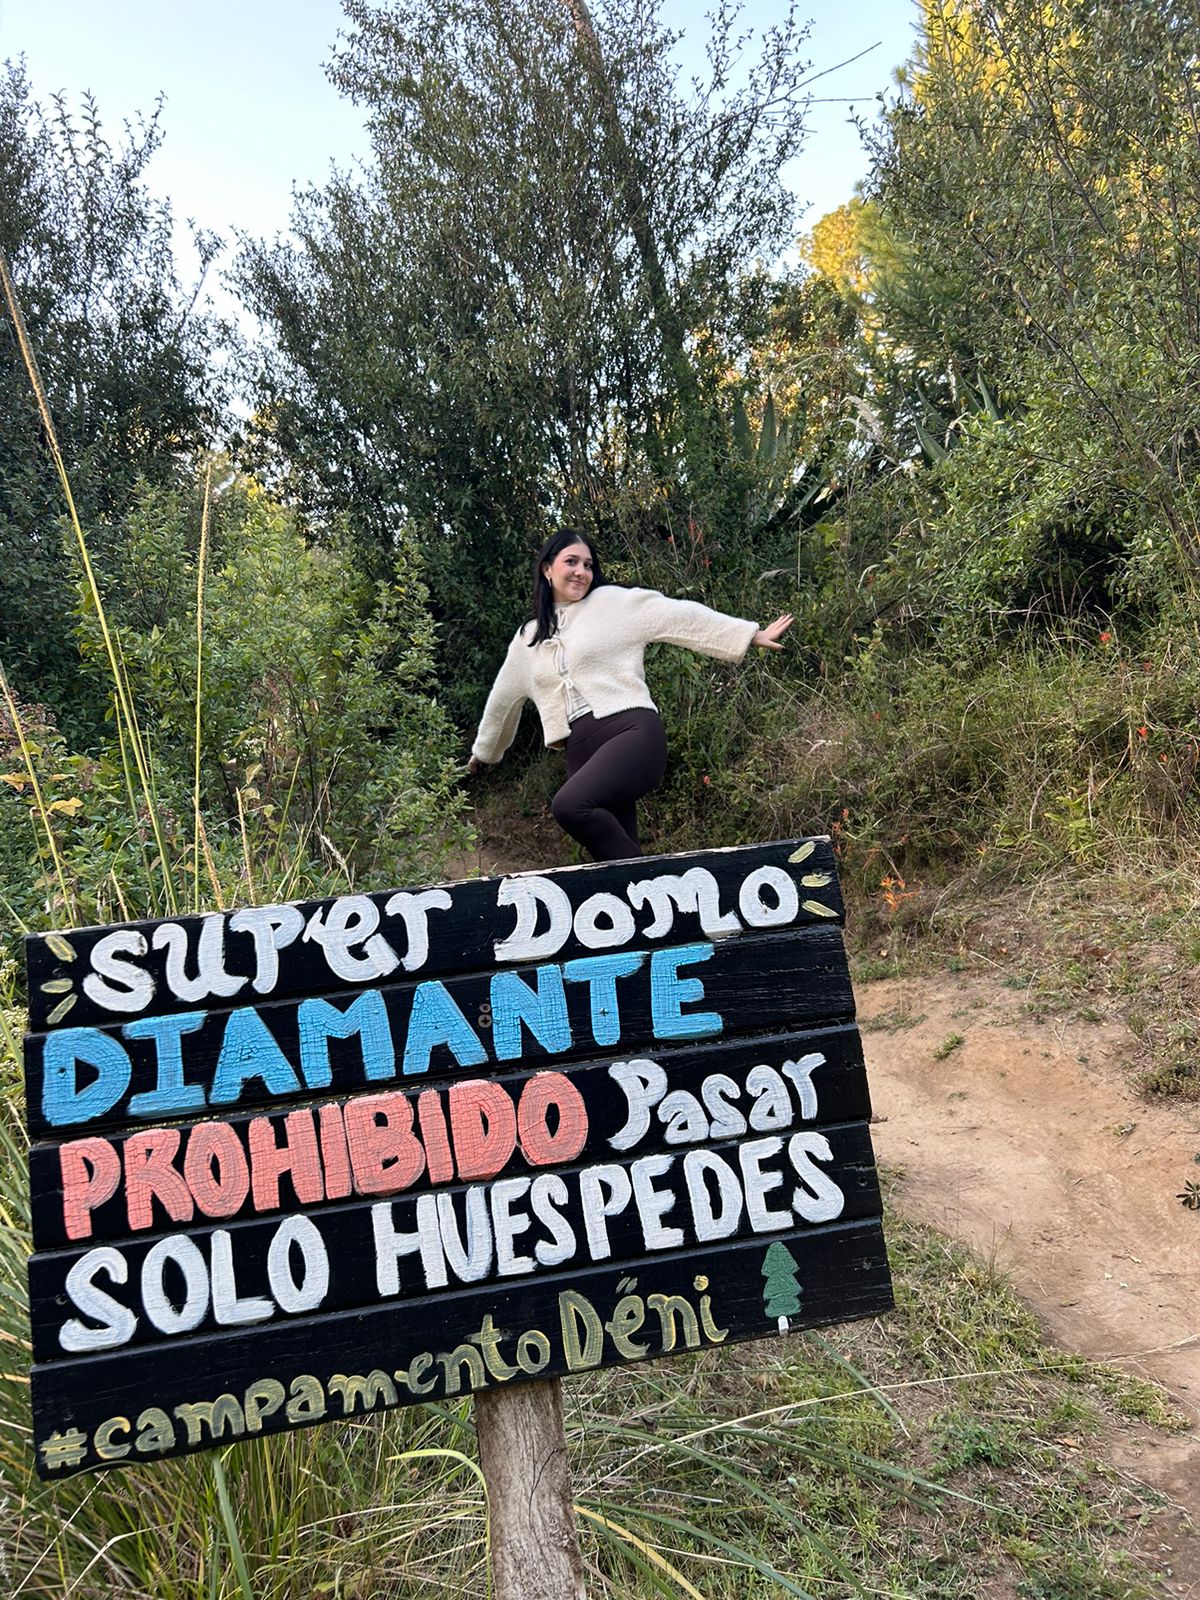 SUPER DOMO
DIAMANTE
PROHIBIDO Pasar
SOLO HUESPEDES
#campamentoDëni